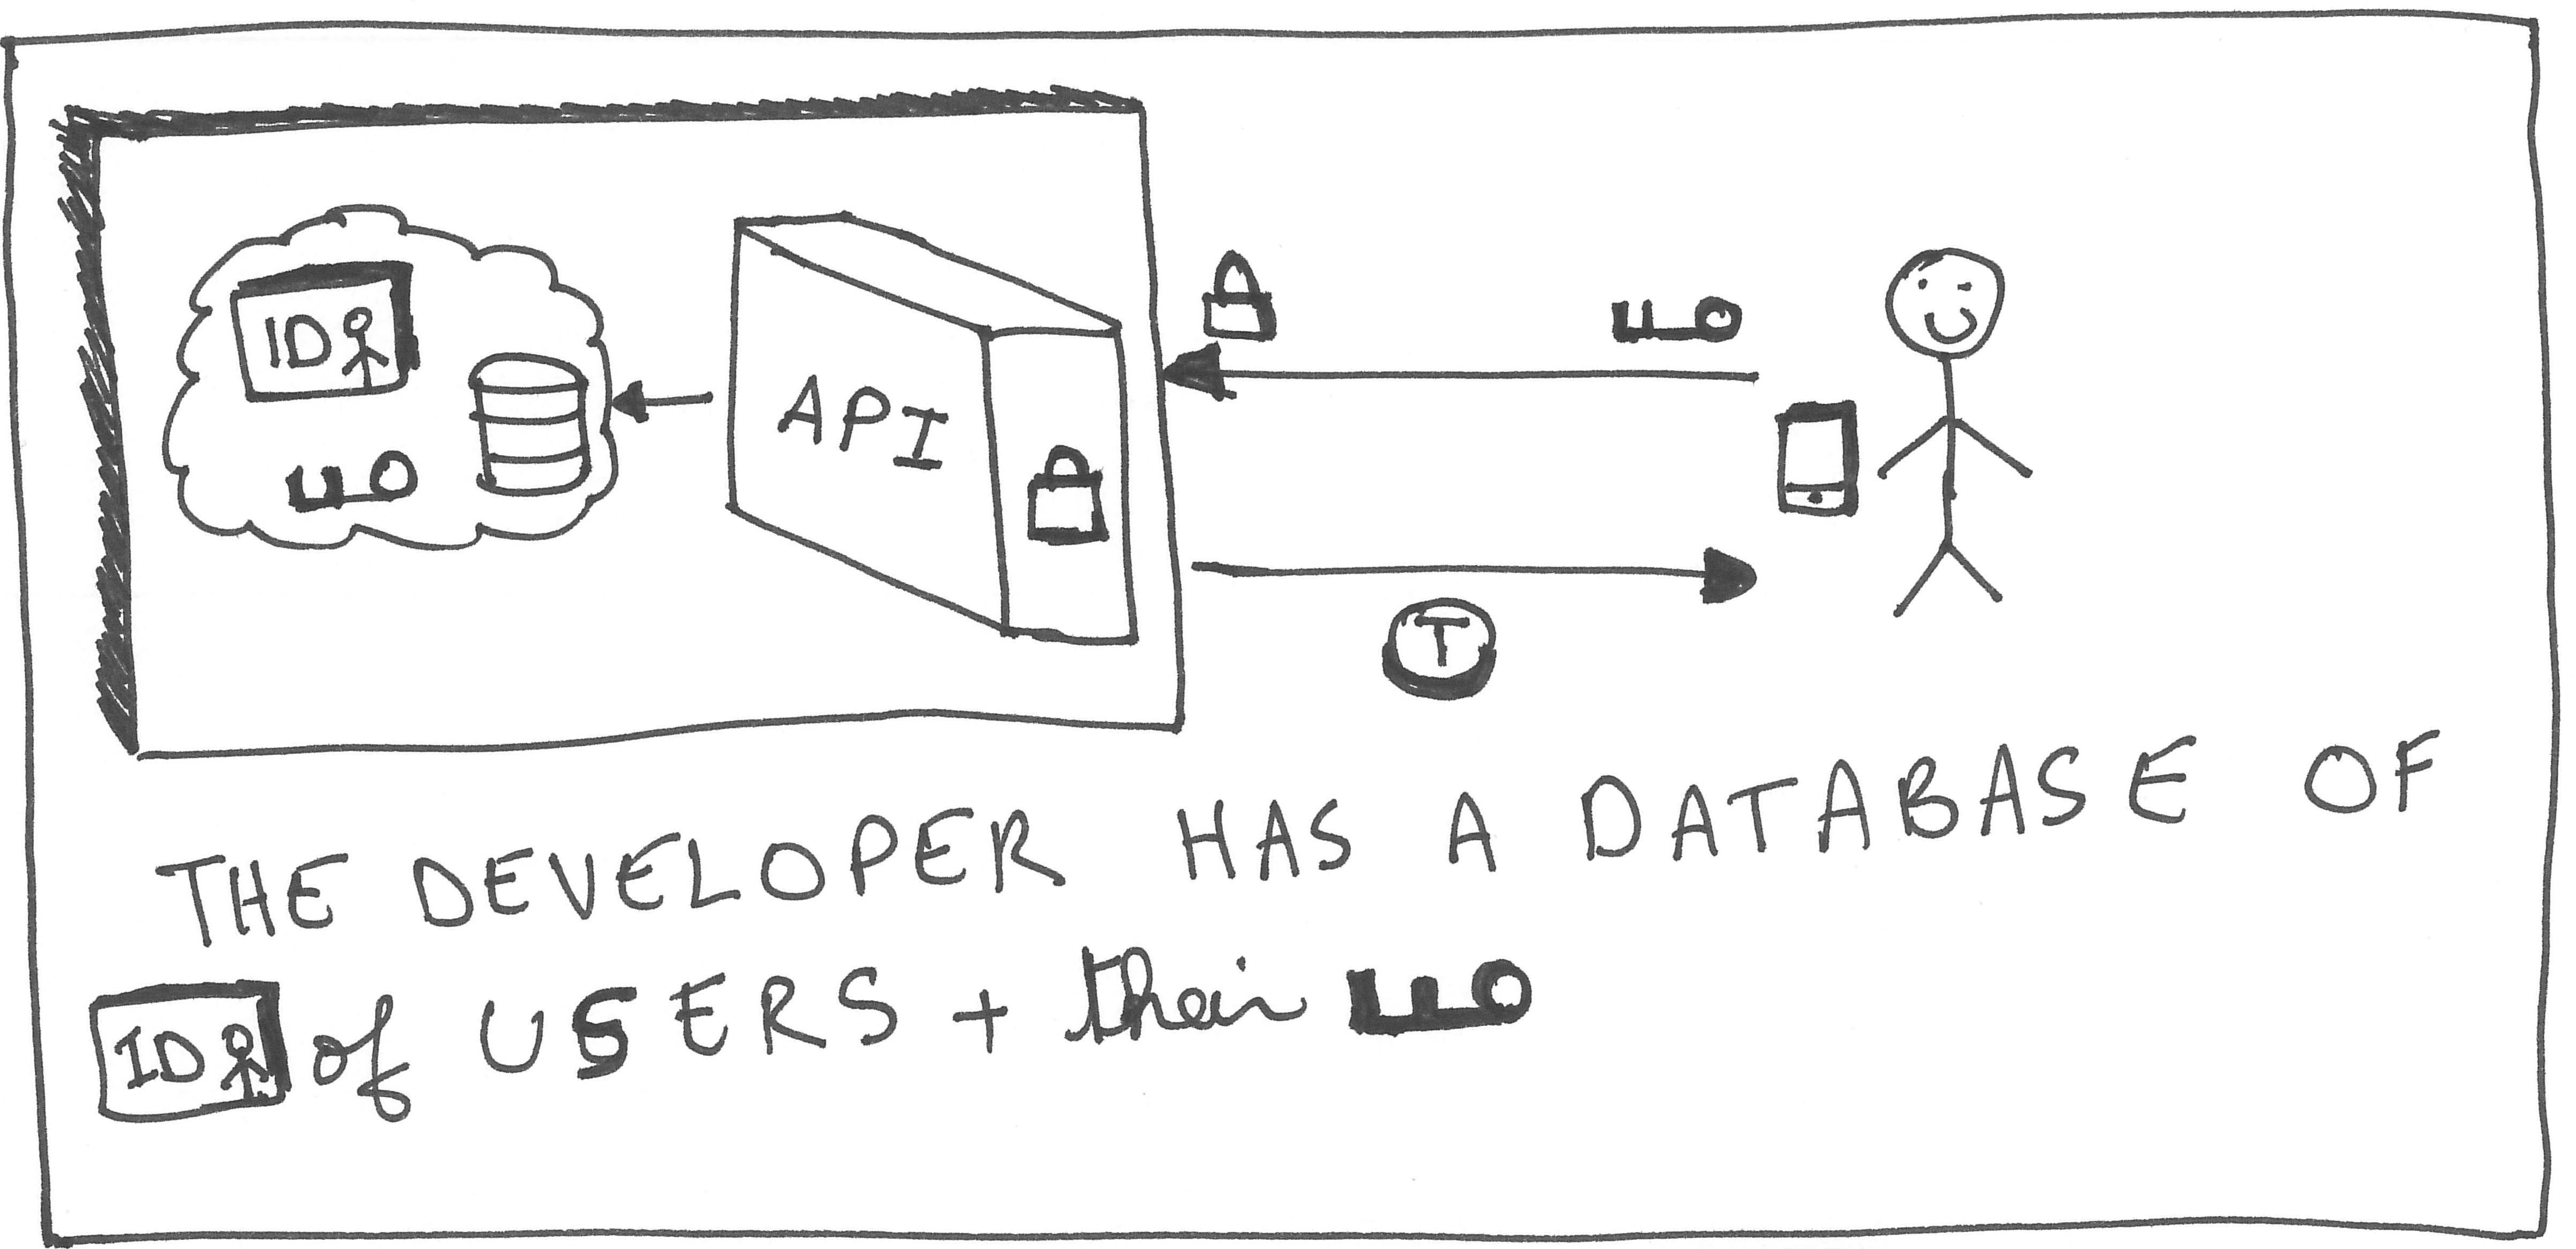 ID
API
T
THE DEVELOPER HAS A DATABASE OF
ID of USERS + their